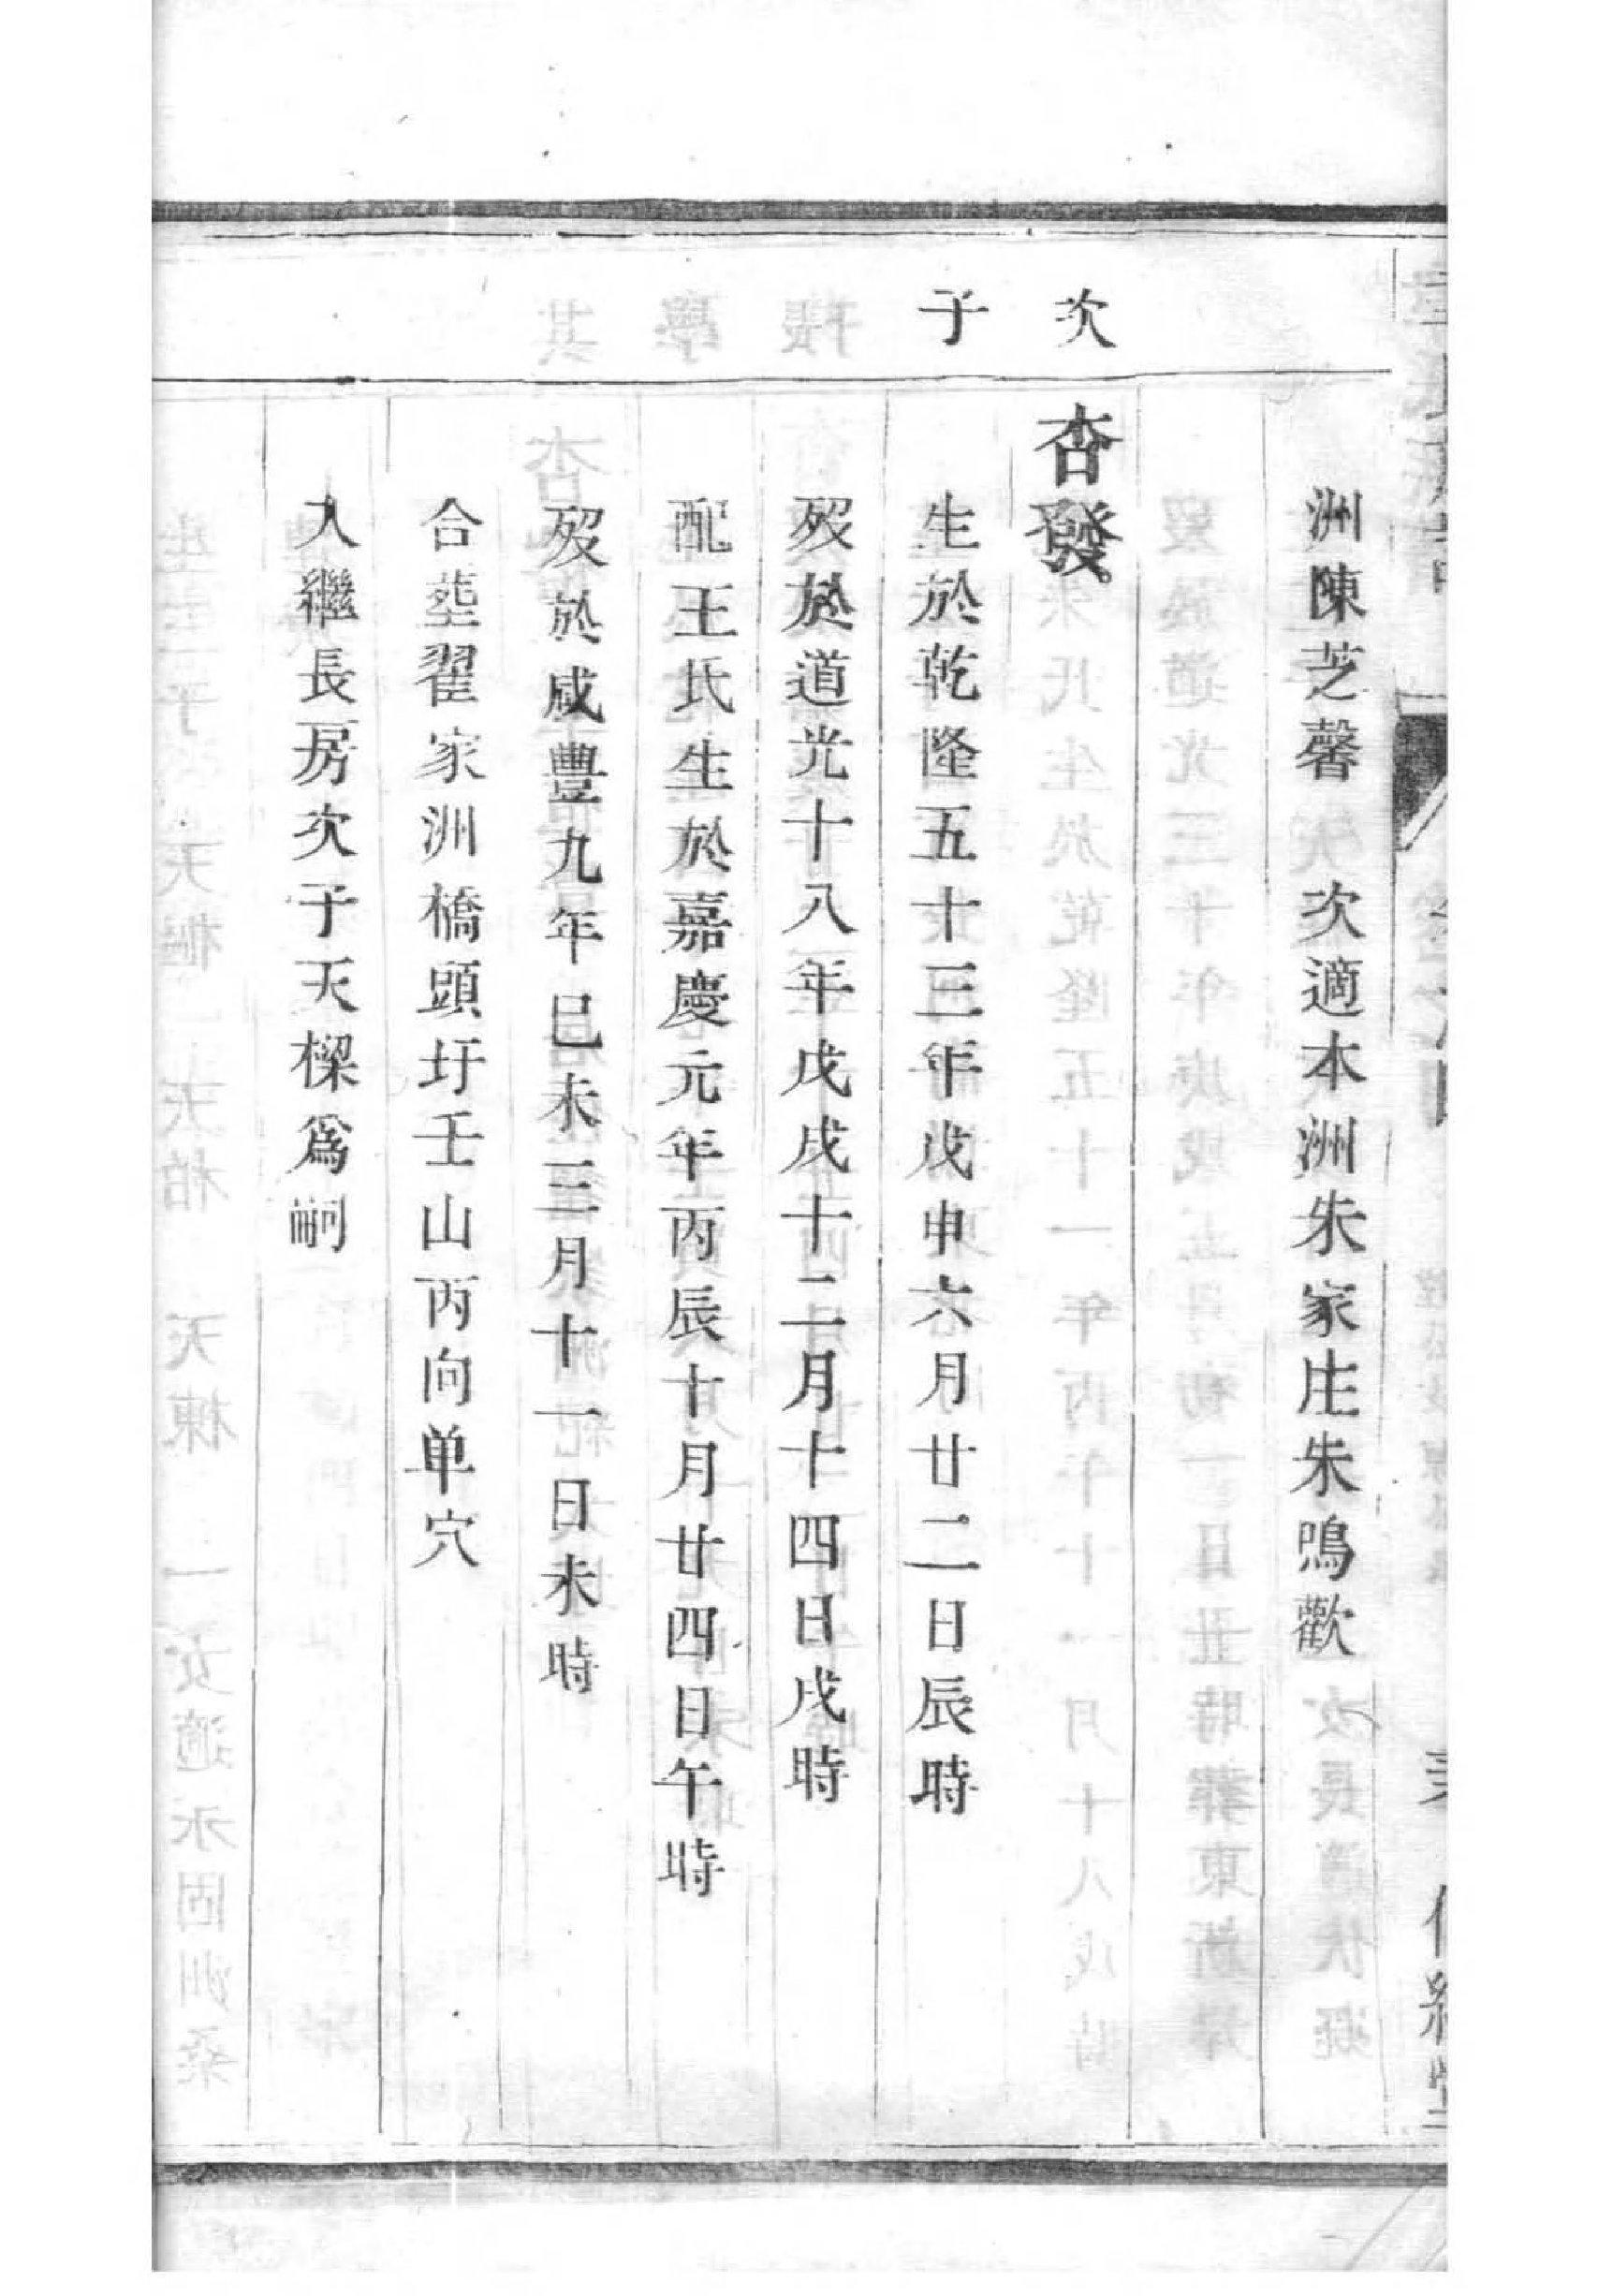 洲陳芝馨　次適本洲朱家庄朱鳴歡
次子
杏發
生於乾隆五十三年戊申六月廿二日辰時
歿於道光十八年戊戌十二月十四日戌時
配王氏生於嘉慶元年丙辰十月廿四日午時
歿於咸豐九年巳未三月十一日未時
合塟翟家洲橋頭圩壬山丙向单穴
入繼長房次子天樑爲嗣